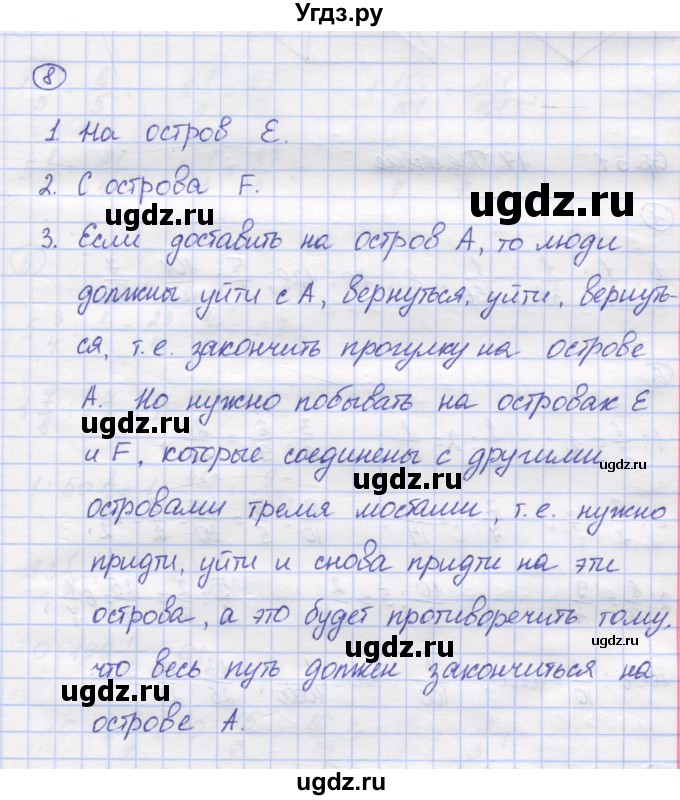 Угдз.ру
8
1. На остров E.
2. С острова F.
ugdz.ru
ugdz.ru
3. Если доставить на остров A, то люди
должны уйти с A, вернуться, уйти, вернуть-
ся, т.е. закончить прогулку на острове
A. Но нужно побывать на островах E
ugdz.ru
и F, которые соединены с другими
ugdz.ru
островами тремя мостами, т.е. нужно
придти, уйти и снова придти на эти
острова, а это будет противоречить тому,
ugdz.ru
ugdz.ru
что весь путь должен закончиться на
ugdz.ru
острове A.
ugdz.ru